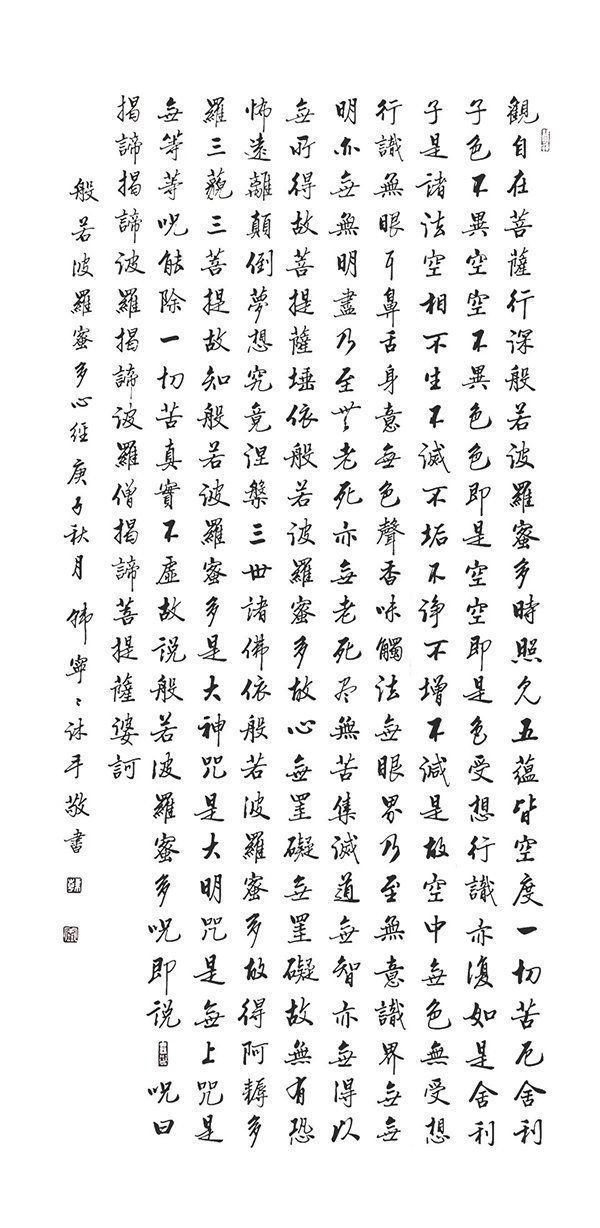 觀自在菩薩行深般若波羅蜜多時照見五蘊皆空度一切苦厄舍利
子色不異空空不異色色即是空空即是色受想行識亦復如是舍利
子是諸法空相不生不滅不垢不淨不增不減是故空中無色無受想
行識無眼耳鼻舌身意無色聲香味觸法無眼界乃至無意識界無無
明亦無無明盡乃至無老死亦無老死尽無苦集滅道無智亦無得以
無所得故菩提薩埵依般若波羅蜜多故心無罣礙無罣礙故無有恐
怖遠離顛倒夢想究竟涅槃三世諸佛依般若波羅蜜多故得阿耨多
羅三藐三菩提故知般若波羅蜜多是大神咒是大明咒是無上咒是
無等等呪能除一切苦真實不虛故説般若波羅蜜多呪即説呪曰
揭諦揭諦波羅揭諦波羅僧揭諦菩提薩婆訶
般若波羅蜜多心經庚子秋月 韩寧〻沐手敬書